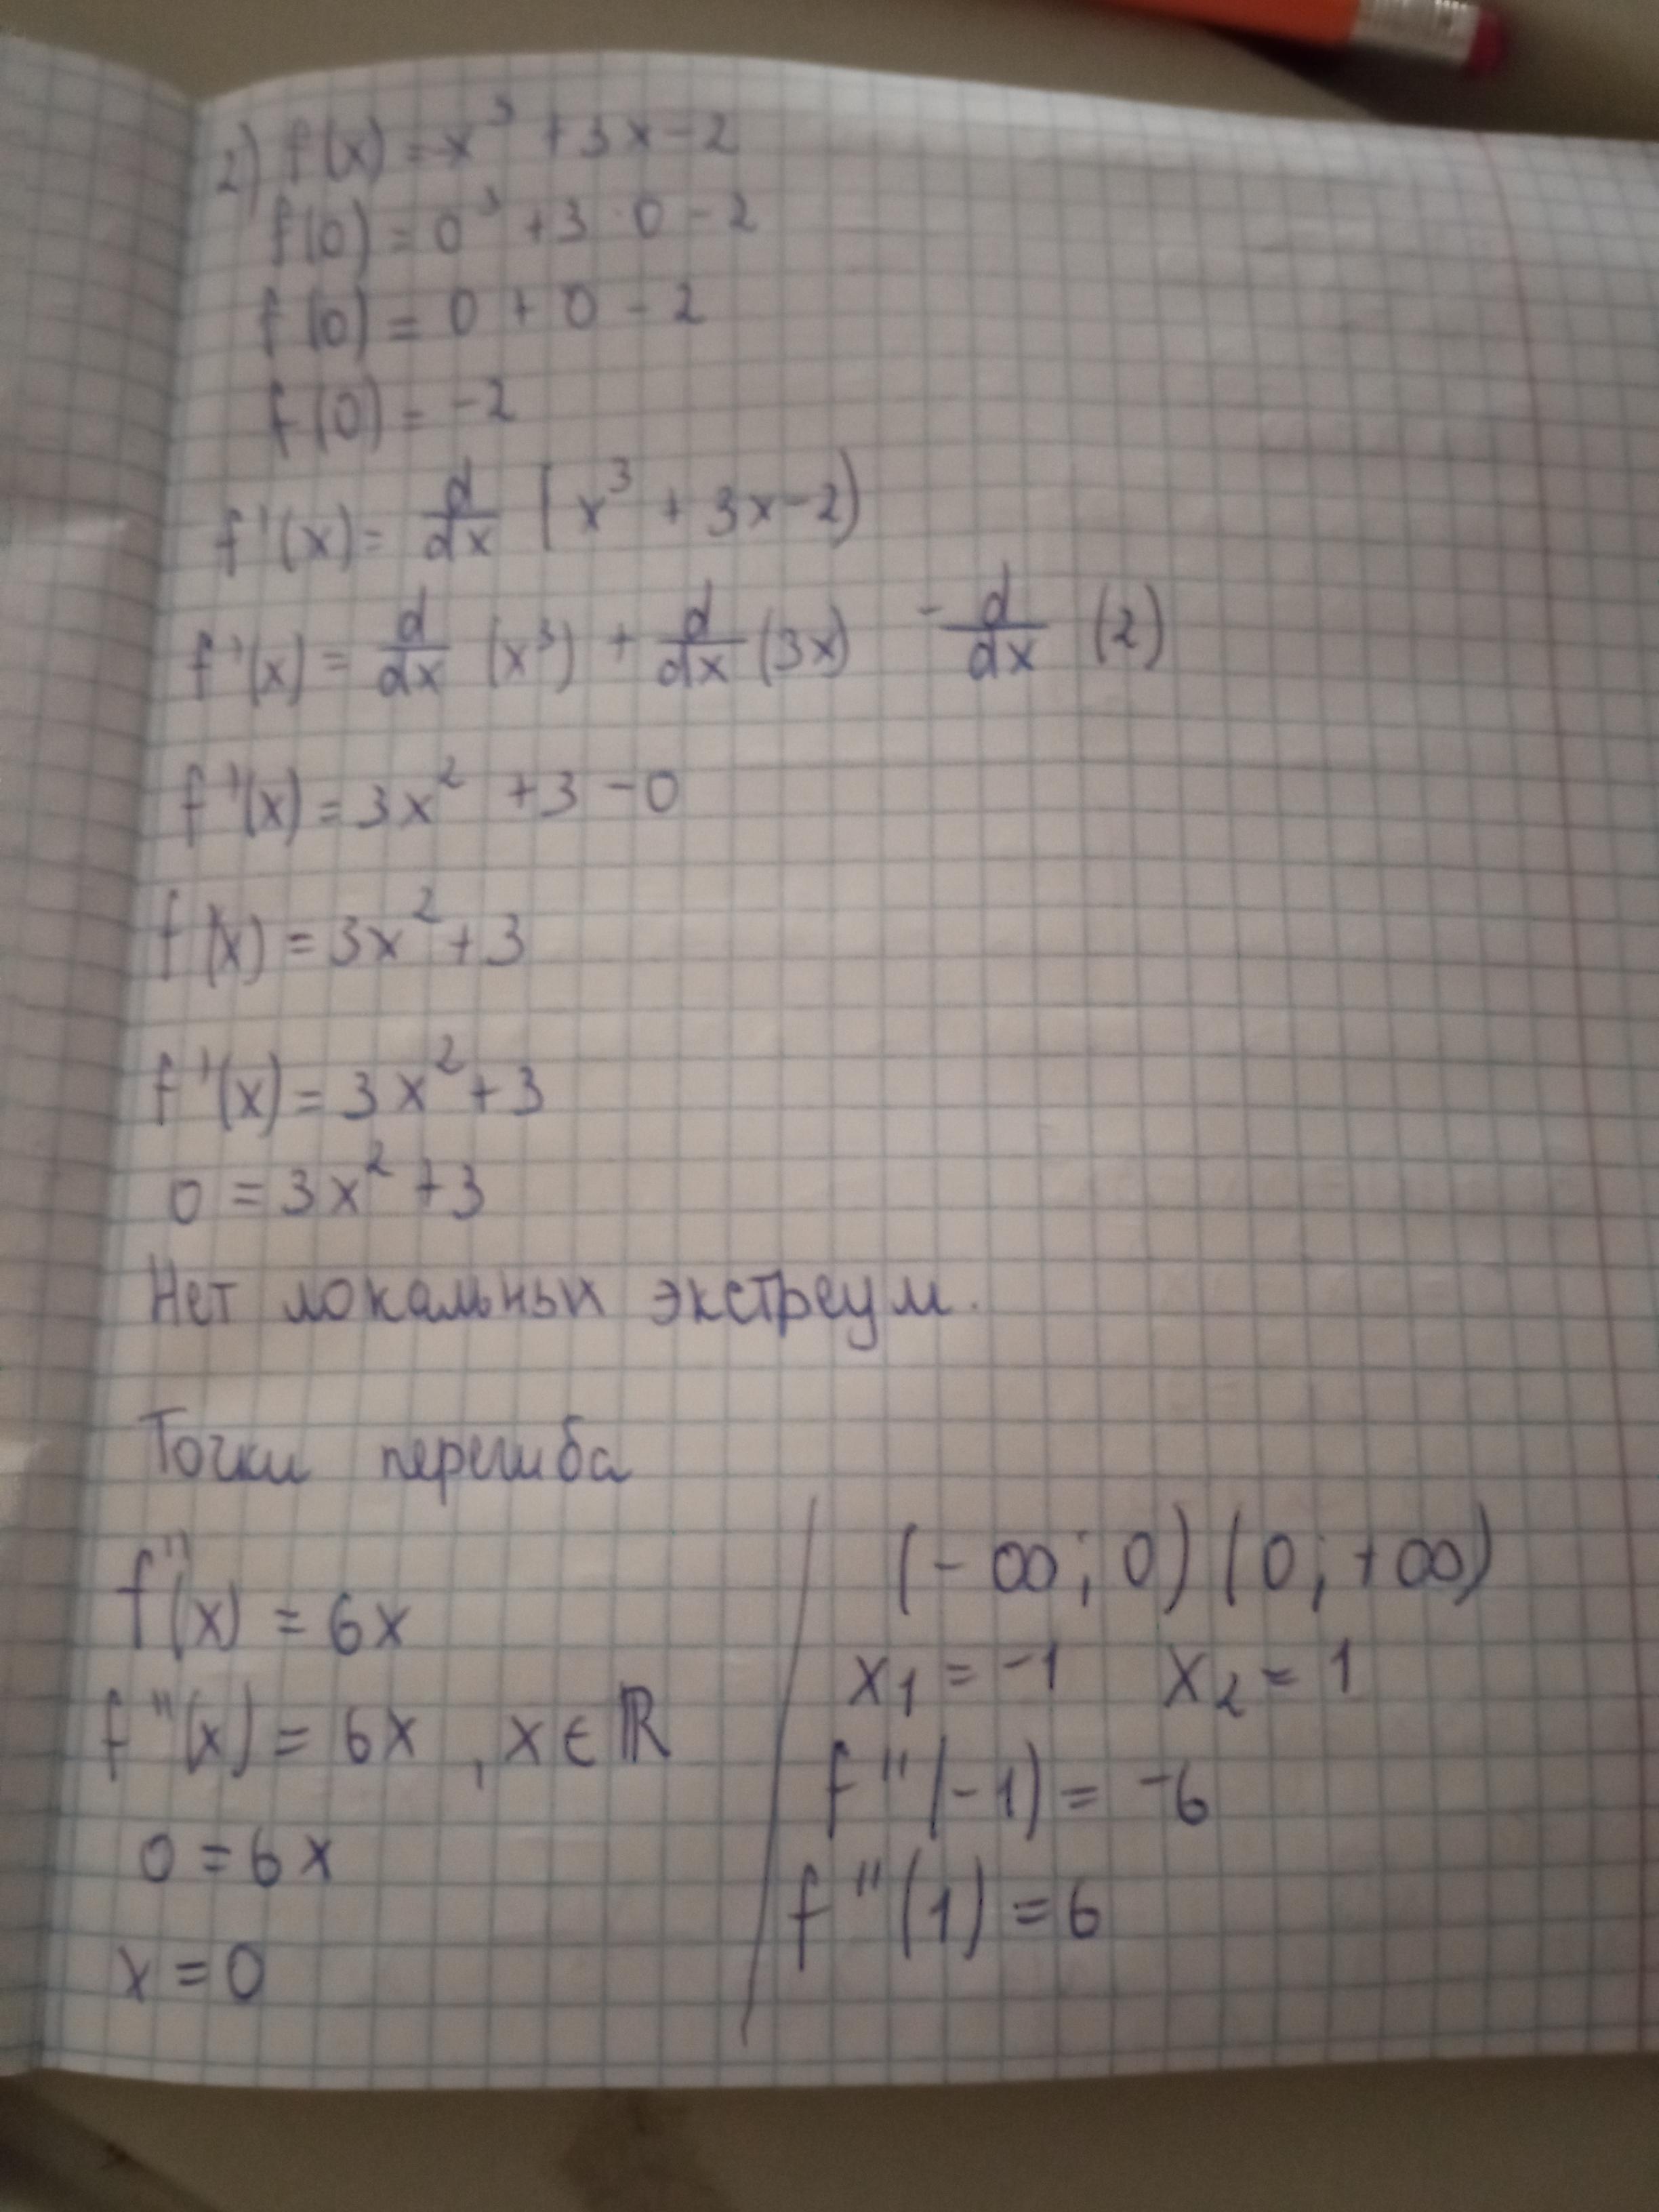 2) f(x) = x³ + 3x - 2
f(0) = 0³ + 3 0 - 2
f(0) = 0 + 0 - 2
f(0) = -2
f'(x) = d/dx (x³ + 3x - 2)
f'(x) = d/dx (x³) + d/dx (3x) - d/dx (2)
f'(x) = 3x² + 3 - 0
f'(x) = 3x² + 3
f'(x) = 3x² + 3
0 = 3x² + 3
Нет локальных экстреум.
Точки перегиба
f''(x) = 6x
f''(x) = 6x , x ∈ ℝ
0 = 6x
x = 0
(-∞; 0) (0; +∞)
x₁ = -1 x₂ = 1
f''(-1) = -6
f''(1) = 6